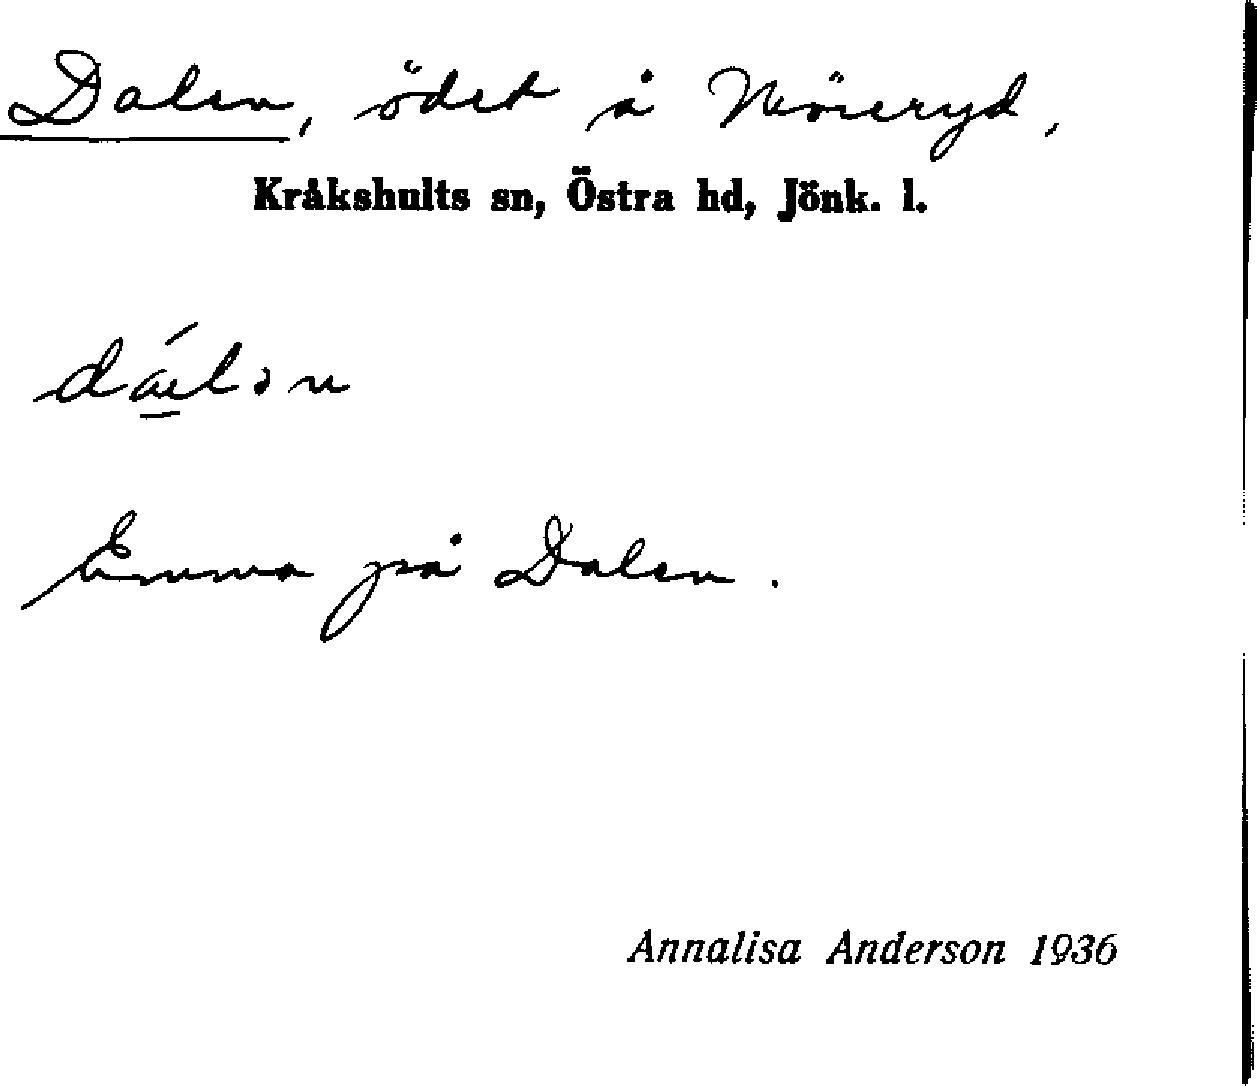 Dalen, ödet å Növeryd,
Kråkshults sn, Östra hd, Jönk. l.
Emma på Dalen.
Annalisa Anderson 1936